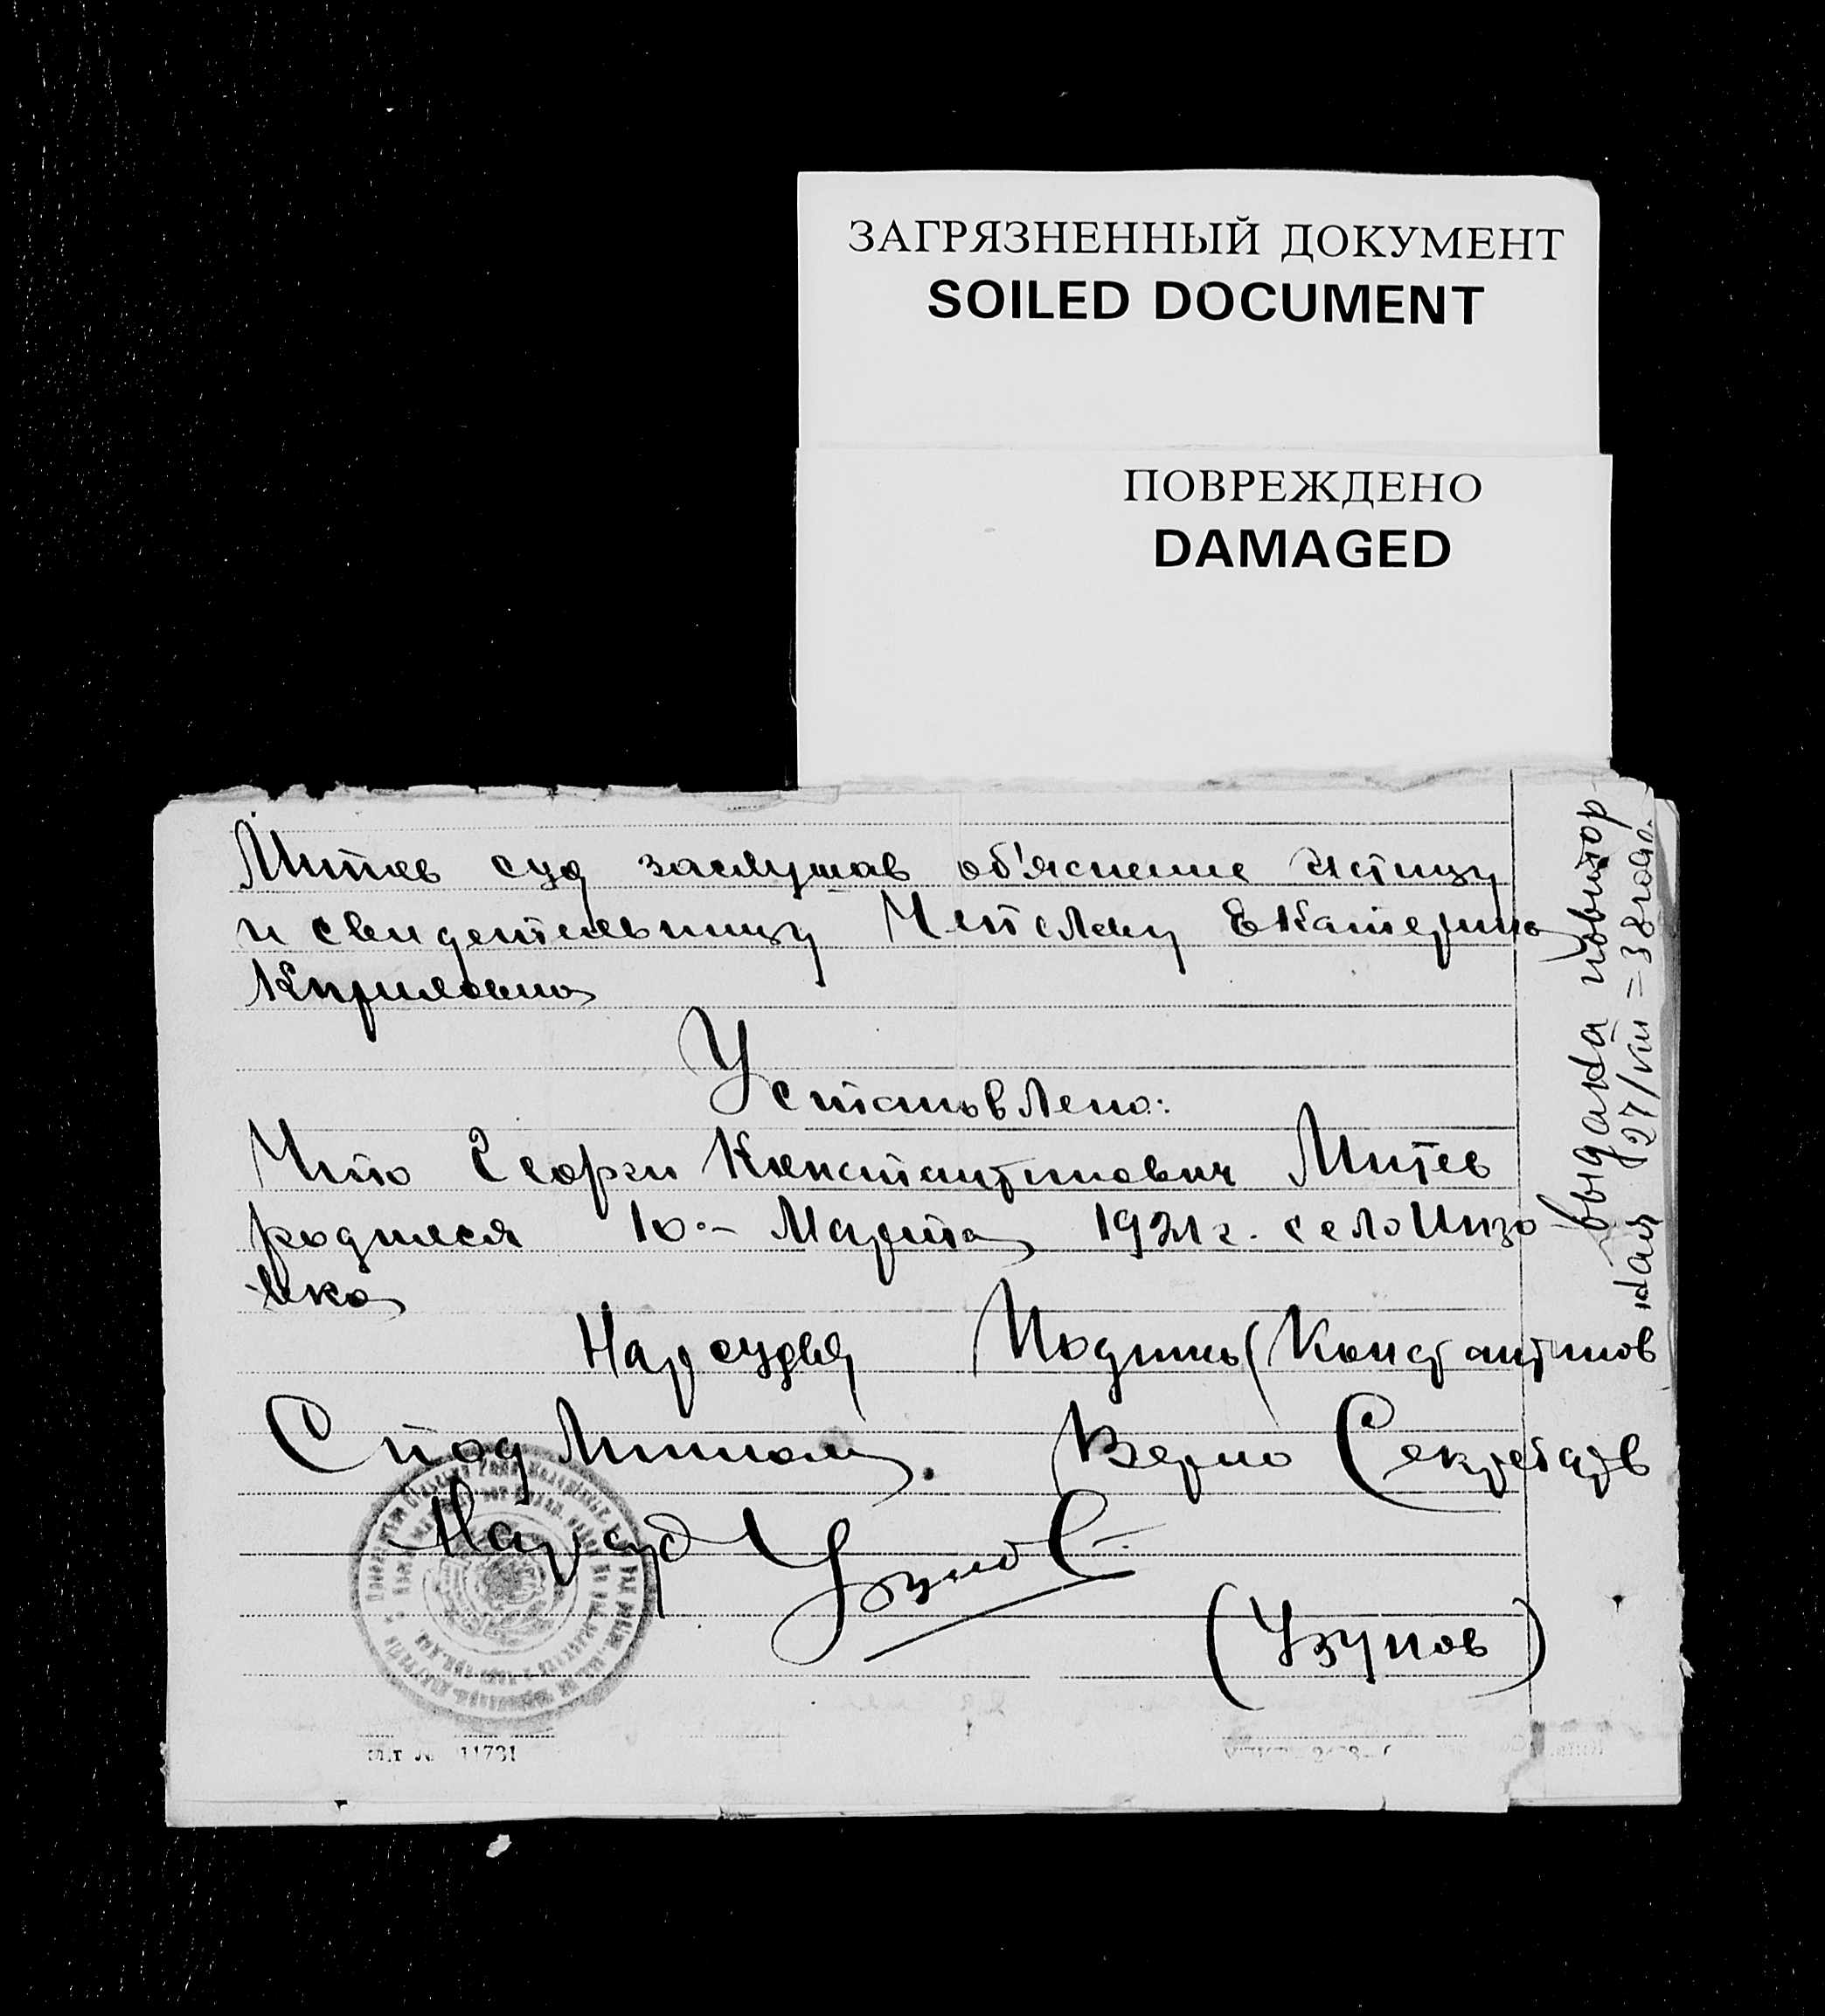 ЗАГРЯЗНЕННЫЙ ДОКУМЕНТ
SOILED DOCUMENT
ПОВРЕЖДЕНО
DAMAGED
Митев суд заслушав об'яснение Истицу
и свидетельницу Чепслану Екатерина
Кириловна
Установлено:
Что Георги Константинович Митев
родился 10 – Марта 1921 г. село Инзо
вка
Нарсудья Подпись (Константинов
С подлином. Верно Секретарь
Нарсуд Узунов
(Узунов)
выдана повитор
ная 27/VIII = 38 года.
11731